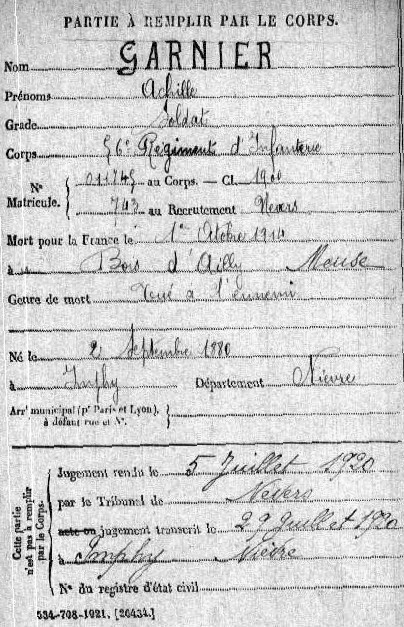 PARTIE À REMPLIR PAR LE CORPS.
Nom GARNIER
Prénoms Achille
Grade Soldat
Corps 56e Régiment d'Infanterie
No Matricule. 011745 au Corps. — Cl. 1900
743 au Recrutement Nevers
Mort pour la France le 1er Octobre 1914
à Bois d'Ailly Meuse
Genre de mort Tué à l'ennemi
Né le 2 Septembre 1880
à Imphy Département Nièvre
Arrt municipal (pr Paris et Lyon),
à défaut rue et No.
Cette partie n'est pas à remplir par le Corps.
Jugement rendu le 5 Juillet 1920
par le Tribunal de Nevers
acte ou jugement transcrit le 29 Juillet 1920
à Imphy Nièvre
No du registre d'état civil
534-708-1921. [26434.]